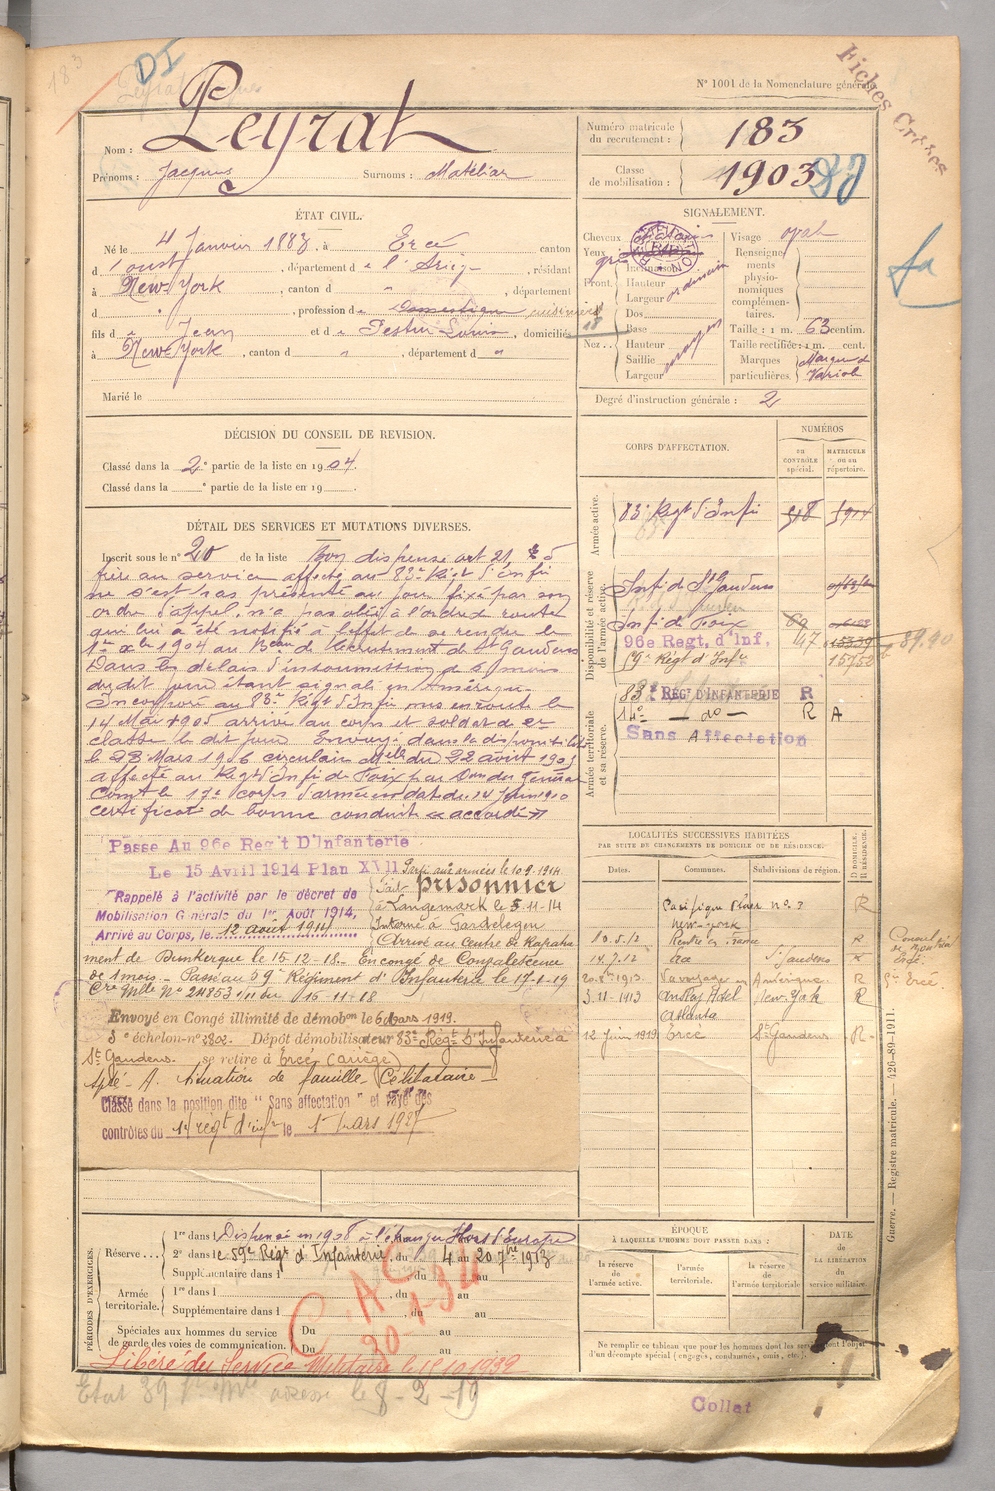 183
DI
Fiches Croisées
N° 1001 de la Nomenclature générale
Nom : Peyrat
Prénoms : Jacques Surnoms : Matélian
Numéro matricule du recrutement : 183
Classe de mobilisation : 1903
ÉTAT CIVIL.
Né le 4 Janvier 1883, à Ercé canton
d'Oust, département de l'Ariège, résidant
à New-York, canton d " , département
d " , profession de Domestique cuisinier
fils de Jean et de Testu Louise, domiciliés
à New-York, canton d " , département d "
Marié le
SIGNALEMENT.
Cheveux châtains
Yeux gris
Front.
Inclinaison
Hauteur
Largeur ordinaire
Nez..
Dos
Base
Hauteur
Saillie
Largeur moyen
Visage oval
Renseignements physionomiques complémentaires.
Taille : 1 m. 63 centim.
Taille rectifiée : 1 m. cent.
Marques particulières. Marques de Variole
Degré d'instruction générale : 2
DÉCISION DU CONSEIL DE REVISION.
Classé dans la 2e partie de la liste en 1904.
Classé dans la e partie de la liste en 19 .
DÉTAIL DES SERVICES ET MUTATIONS DIVERSES.
Inscrit sous le n° 20 de la liste Bon dispensé art 21,
frère au service affecté au 83e Régt d'Infie
ne s'est pas présenté au jour fixé par son
ordre d'appel, n'a pas obéi à l'ordre de route
qui lui a été notifié à l'effet de se rendre le
1er Xbre 1904 au Beau de Recrutement de St Gaudens
Dans les délais d'insoumission de 6 mois
du dit jour étant signalé en Amérique.
Incorporé au 83e Régt d'Infie mis en route le
14 Mai 1905 arrivé au corps et soldat de 2e
classe le dit jour. Envoyé dans la disponibilité
le 28 Mars 1906 circulaire Mlle du 22 août 1905
affecté au Régt d'Infie de Foix par Don du Général
Comt le 17e corps d'armée en date du 14 Juin 1910
certificat de bonne conduite « accordé »
Passé Au 96e Reg't D'Infanterie
Le 15 Avril 1914 Plan XVII
Rappelé à l'activité par le décret de
Mobilisation Générale du 1er Août 1914,
Arrivé au Corps, le 12 août 1914
Parti aux armées le 10.9.1914
Fait prisonnier
à Langemark le 5-11-14
Interné à Gardelegen
Arrivé au Centre de Rapatrie
ment de Dunkerque le 15-12-18. En congé de Convalescence
de 1 mois. Passé au 59e Régiment d'Infanterie le 17-1-19
Cre Mlle N° 24853 1/11 du 16-11-18
Envoyé en Congé illimité de démobon le 6 Mars 1919.
3e échelon n° 3802. Dépôt démobilisateur 83e Régt d'Infanterie à
St Gaudens. se retire à Ercé (Ariège)
Apté - A. situation de famille Célibataire -
Classé dans la position dite " Sans affectation " et rayé des
contrôles du 14e régt d'infie le 1er Mars 1927
CORPS D'AFFECTATION.
NUMÉROS
au CONTRÔLE spécial.
MATRICULE ou au répertoire.
Armée active.
83e Régt d'Infie
Disponibilité et réserve de l'armée active.
Infie de St Gaudens
Infie de Foix
96e Regt. d'Inf.
59e Régt d'Infie 47 15752
Armée territoriale et sa réserve.
83e REGt D'INFANTERIE R
14e — do — R A
Sans Affectation
LOCALITÉS SUCCESSIVES HABITÉES
PAR SUITE DE CHANGEMENTS DE DOMICILE OU DE RÉSIDENCE.
Dates. Communes. Subdivisions de région. D DOMICILE. R RÉSIDENCE.
Pacifique Place n° 3 R
New-York
10.5.12 Rentré en France R
14.7.12 Ercé St Gaudens R
1913 Va voyager en Amérique R
3-11-1913 Astor Hôtel New-York R
Atlanta
12 Juin 1919 Ercé St Gaudens R
Guerre. — Registre matricule. — 426-89-1911.
PÉRIODES D'EXERCICES.
Réserve...
1re dans l Dispensé en 1908 à l'étranger Hors d'Europe
2e dans le 59e Régt d'Infanterie, du 4 au 20 7bre 1913
Supplémentaire dans l , du au
Armée territoriale.
1re dans l , du au
Supplémentaire dans l , du au
Spéciales aux hommes du service de garde des voies de communication.
Du au
Du au
C.A.C.
Libéré du Service Militaire le 15.10.1932
ÉPOQUE
À LAQUELLE L'HOMME DOIT PASSER DANS :
la réserve de l'armée active.
l'armée territoriale.
la réserve de l'armée territoriale
DATE de LA LIBÉRATION du service militaire.
Ne remplir ce tableau que pour les hommes dont les services font l'objet
d'un décompte spécial (engagés, condamnés, omis, etc.).
Collat